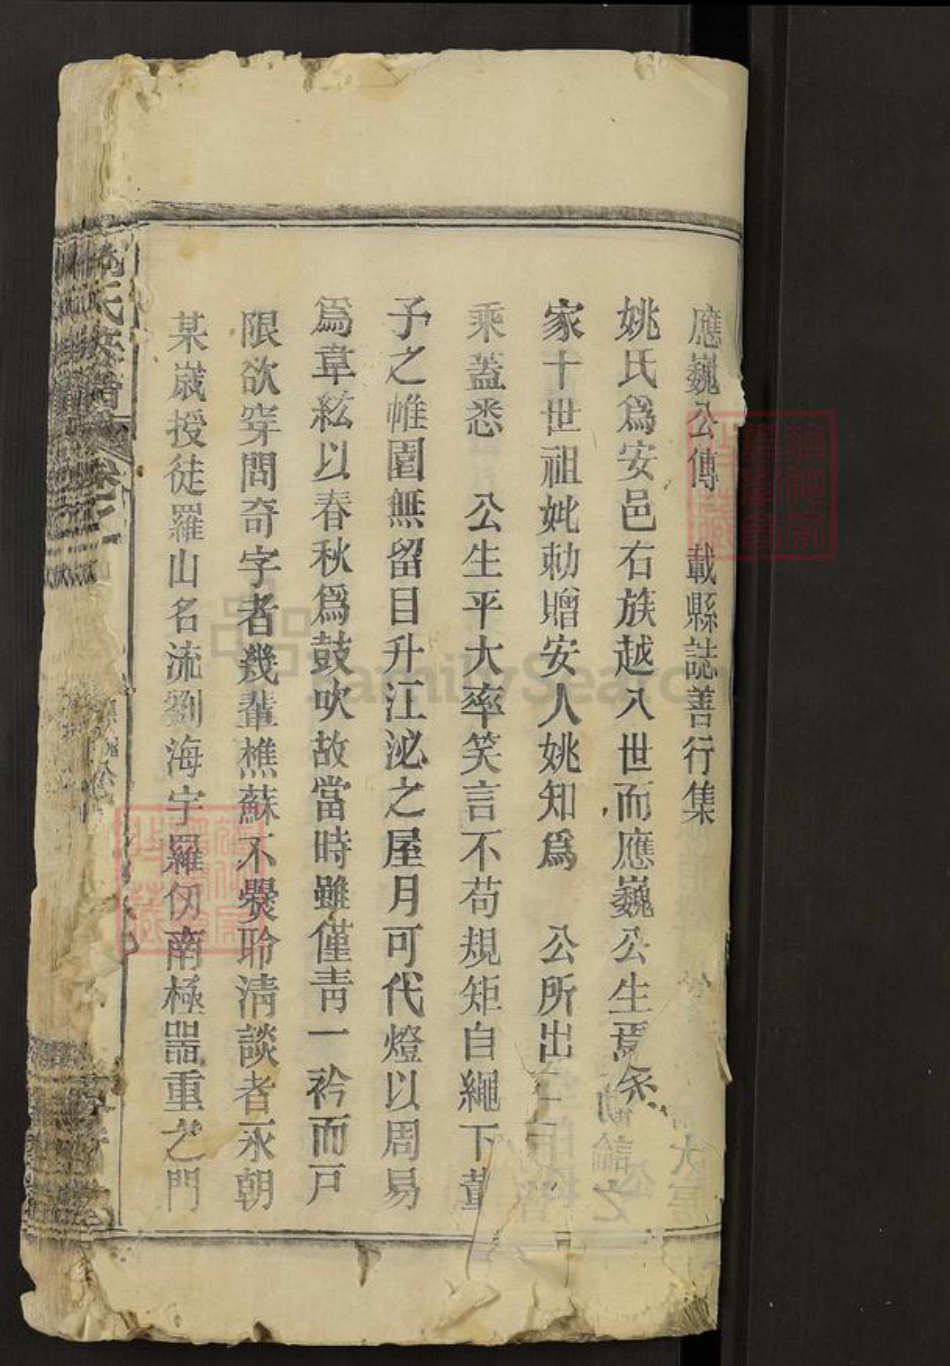 應巍公傳 載縣誌善行集
姚氏爲安邑右族越入世而應巍公生焉余
家十世祖妣勅贈安人姚知爲 公所出
乘蓋悉 公生平大率笑言不苟規矩自繩下董
子之帷園無留目升江泌之屋月可代燈以周易
爲韋絃以春秋爲鼓吹故當時雖僅靑一衿而戸
限欲穿問奇字者幾輩樵蘇不爨聆淸談者永朝
某嵗授徒羅山名流劉海宇羅仞南極器重之門
氏
卷
FamilySearch